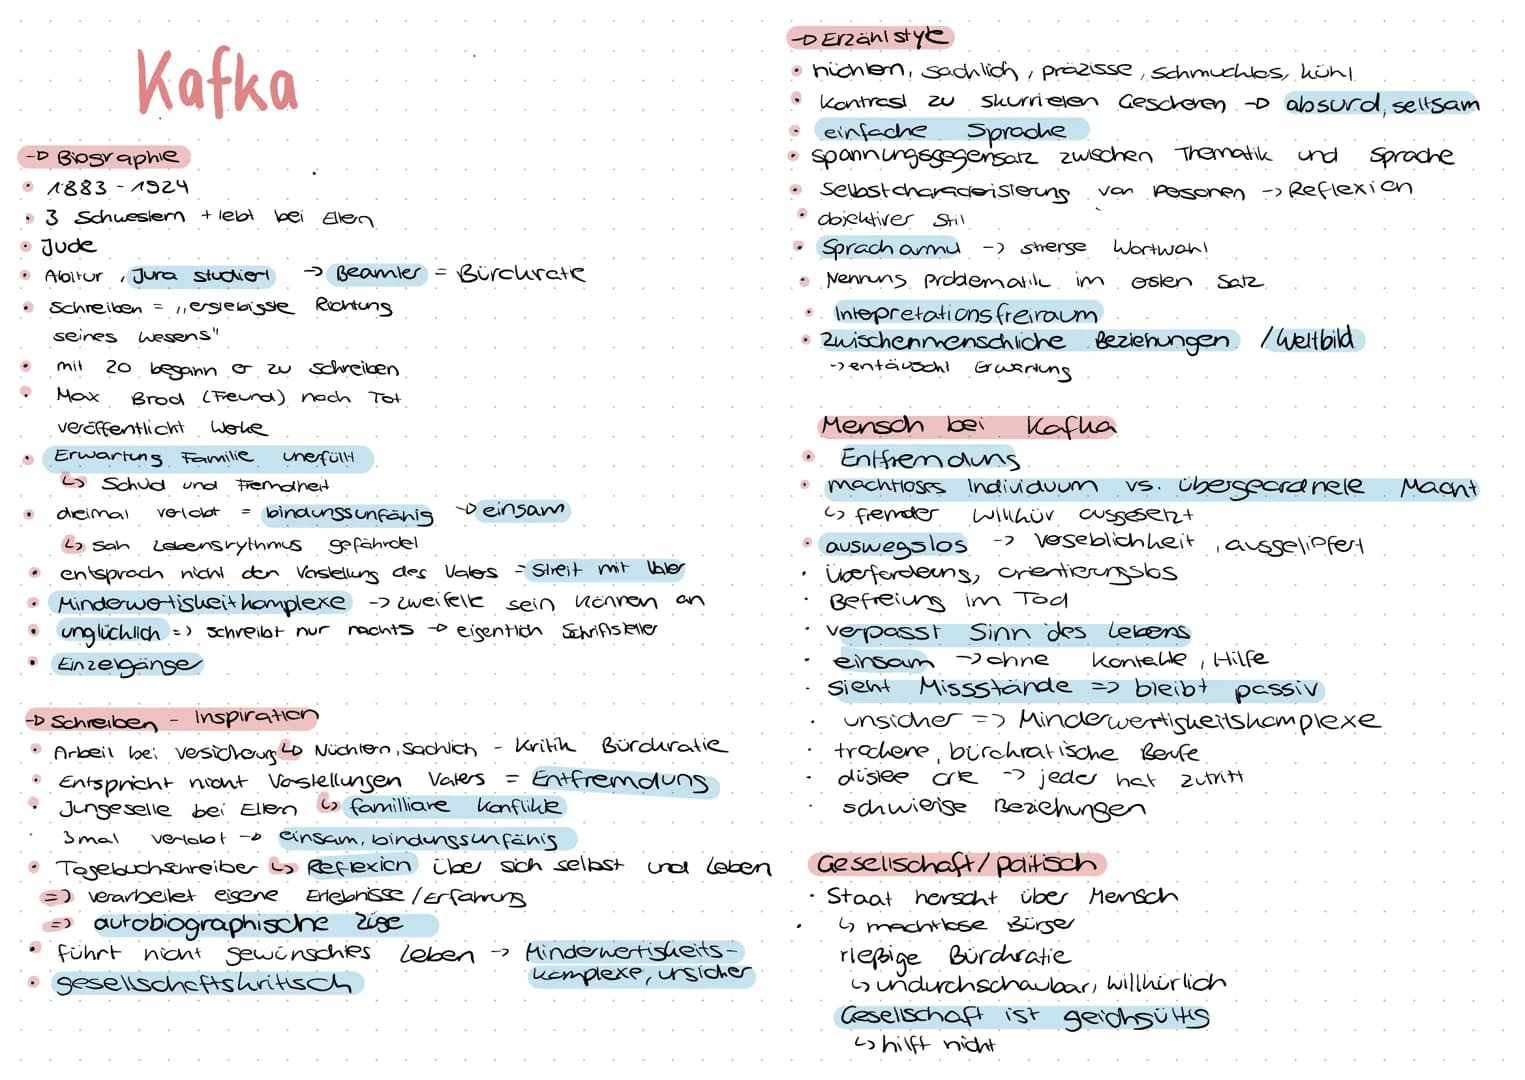 Kafka
→ Biographie
• 1883 - 1924
• 3 Schwestern + lebt bei Eltern
• Jude
• Abitur, Jura studiert → Beamter = Bürokratie
• Schreiben = „ergiebigste Richtung
seines Wesens"
• mit 20 begann er zu schreiben
• Max Brod (Freund) nach Tot
veröffentlicht Werke
• Erwartung Familie unerfüllt
↳ Schuld und Fremdheit
• dreimal verlobt = bindungsunfähig → einsam
↳ sah Lebensrythmus gefährdet
• entsprach nicht den Vorstellung des Vaters = Streit mit Vater
• Minderwertigkeitkomplexe → zweifelte sein Können an
• unglücklich => schreibt nur nachts → eigentlich Schriftsteller
• Einzelgänger
→ Schreiben - Inspiration
• Arbeit bei Versicherung ↳ Nüchtern, Sachlich - Kritik Bürokratie
• Entspricht nicht Vorstellungen Vaters = Entfremdung
• Jungeselle bei Eltern ↳ familliäre Konflikte
• 3mal verlobt → einsam, bindungsunfähig
• Tagebuchschreiber ↳ Reflexion über sich selbst und Leben
=> verarbeitet eigene Erlebnisse / Erfahrung
=> autobiographische Züge
• führt nicht gewünschtes Leben → Minderwertigkeits-
komplexe, unsicher
• gesellschaftskritisch
→ Erzählstyle
• nüchtern, sachlich, präzisse, schmucklos, kühl
• Kontrast zu skurrielen Geschehen → absurd, seltsam
• einfache Sprache
• Spannungsgegensatz zwischen Thematik und Sprache
• Selbstcharacterisierung von Personen → Reflexion
• objektiver Stil
• Spracharmut → strenge Wortwahl
• Nennung Problematik im ersten Satz
• Interpretationsfreiraum
• zwischenmenschliche Beziehungen / Weltbild
→ entäuscht Erwartung
Mensch bei Kafka
• Entfremdung
• machtloses Individuum vs. übergeordnete Macht
↳ fremder Willkür ausgesetzt
• auswegslos → Vergeblichkeit, ausgeliefert
• Überforderung, orientierungslos
• Befreiung im Tod
• verpasst Sinn des Lebens
• einsam → ohne Kontakte, Hilfe
• sieht Missstände => bleibt passiv
• unsicher => Minderwertigkeitskomplexe
• trockene, bürokratische Berufe
• düstere Orte → jeder hat zutritt
• schwierige Beziehungen
Gesellschaft/politisch
• Staat herscht über Mensch
• ↳ machtlose Bürger
rießige Bürokratie
↳ undurchschaubar, willkürlich
Gesellschaft ist gleichgültig
↳ hilft nicht